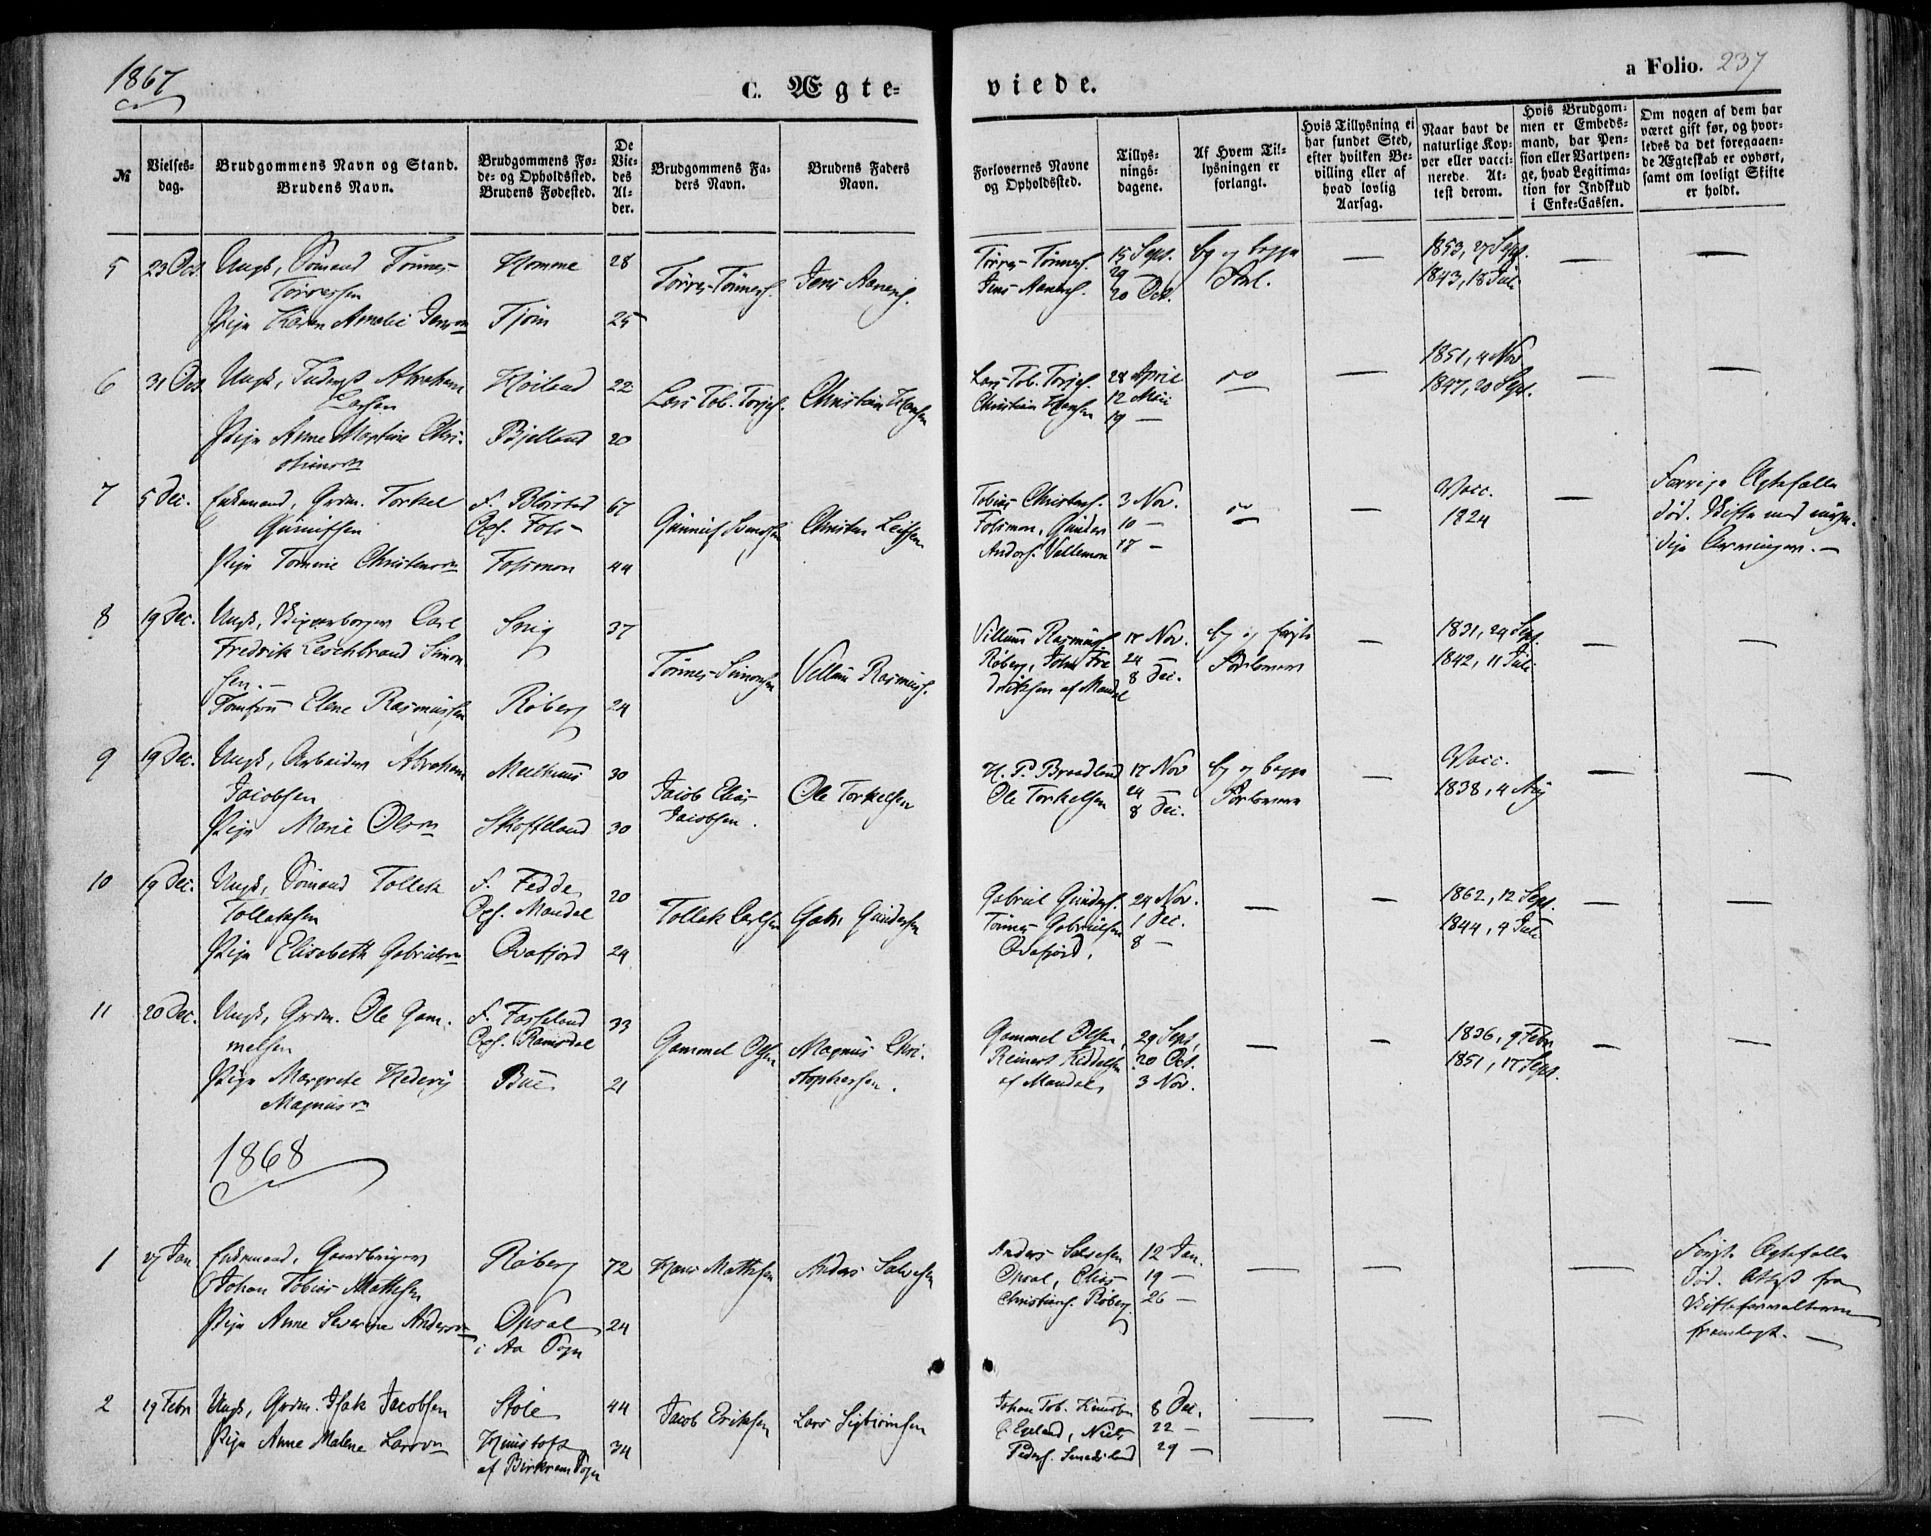 1867
C. Ægte-
viede.
a Folio. 237
№
Vielses-
dag.
Brudgommens Navn og Stand.
Brudens Navn.
Brudgommens Fø-
de- og Opholdssted.
Brudens Fødested.
De
Vie-
des
Al-
der.
Brudgommens Fa-
ders Navn.
Brudens Faders
Navn.
Forlovernes Navne
og Opholdssted.
Tillys-
nings-
dagene.
Af Hvem Til-
lysningen er
forlangt.
Hvis Tillysning ei
har fundet Sted,
efter hvilken Be-
villing eller af
hvad lovlig
Aarsag.
Naar havt de
naturlige Kop-
per eller vacci-
nerede. At-
test derom.
Hvis Brudgom-
men er Embeds-
mand, har Pen-
sion eller Vartpen-
ge, hvad Legitima-
tion for Indskud
i Enke-Cassen.
Om nogen af dem har
været gift før, og hvor-
ledes da det foregaaen-
de Ægteskab er ophørt,
samt om lovligt Skifte
er holdt.
5
23 Oct.
Ungk, Sömand Tönnes
Törressen
Pige Karen Amalie Jensen
Homme
Fjom
28
25
Törres Tönnes.
Jens Aanens.
Törres Tönnes.
Jens Aanens.
15 Sept.
29 —
20 Oct.
By og begge
1853, 27 Sept.
1843, 18 Juli
—
6
31 Oct
Ungk, Abraham
Larsen
Pige Anne Martine Chri-
Höiland
Bjelland
22
20
Lars Tob. Torjes.
Christian Hansen
Lars Tob. Torjes.
Christian Hansen
28 April
12 Mai
19 —
do
1851, 4 Nov
1847, 20 Sept.
—
7
5 Dec.
Enkemand, Grdm. Torkel
Gunnufsen
Pige Tomine Christensen
F.
Oph. Foss
Fossmon
67
44
Gunnuf Svendsen
Christen Leifsen
Tobias Christens.
Fossmon, Gunder
Anders. Vallemon
3 Nov.
10 —
17 —
do
Vacc.
1824
Forrige Ægtefælle
död. Skifte med myn-
dige Arvinger. —
8
19 Dec.
Ungk, Skipperborger Carl
Fredrik Leschbrand Simon-
sen. —
Jomfru Elene Rasmussen
Snig
Röberg
37
24
Tönnes Simonsen
Villum Rasmuss.
Villum Rasmuss.
Röberg, John Fre-
driksen af Mandal
17 Nov.
24 —
8 Dec.
By og første
Forlovere
1831, 24 Sept.
1842, 11 Juli
—
9
19 Dec.
Ungk, Arbeider Abraham
Jacobsen
Pige Marie Olsen
Skoffeland
30
30
Jacob Elias
Jacobsen.
Ole Torkelsen
H. P. Braadland
Ole Torkelsen
17 Nov
24 —
8 Dec.
By og begge
Forlovere
Vacc.
1838, 4 Aug
—
10
19 Dec.
Ungk, Sömand Tollak
Tollaksen
Pige Elisabeth Gabrielsen
F. Fedde
Oph. Mandal
Qvafjord
20
24
Tollak Carlsen
Gabr. Gundersen
Gabriel Gunders.
Tönnes Gabrielsen
Qvafjord,
24 Nov.
1 Dec.
8 —
1862, 12 Sept.
1844, 4 Juli
—
11
20 Dec.
Ungk, Grdm. Ole Gam-
melsen
Pige Margrete Hedevig
Magnusen
F. Fasseland
Oph. Ramsdal
Bue
33
21
Gammel Olsen
Magnus Chri-
stophersen.
Gammel Olsen,
Reinert
af Mandal
29 Sept,
20 Oct.
3 Nov.
1836, 9 Febr
1851, 17 Sept.
—
1868
1
27 Jan
Enkemand, Gaardbruger
Johan Tobias Mathisen
Pige Anne Severine Andersen
Röberg
Opsal
i Aa Sogn
72
24
Hans Mathisen
Anders Salvesen
Anders Salvesen
Opsal, Elias
Christians. Röberg.
12 Jan.
19 —
26 —
Første Ægtefælle
död. Attest fra
Skifteforvalteren
fremlagt. —
2
19 Febr
Ungk, Grdm. Isak Jacobsen
Pige Anne Malene Larsen
Støle
af Birkrem Sogn
44
34
Jacob Eriksen
Lars Sigbjörnsen
Johan Tob. Knudsen
Egeland, Niels
Peders.
8 Dec.
22 —
29 —
—